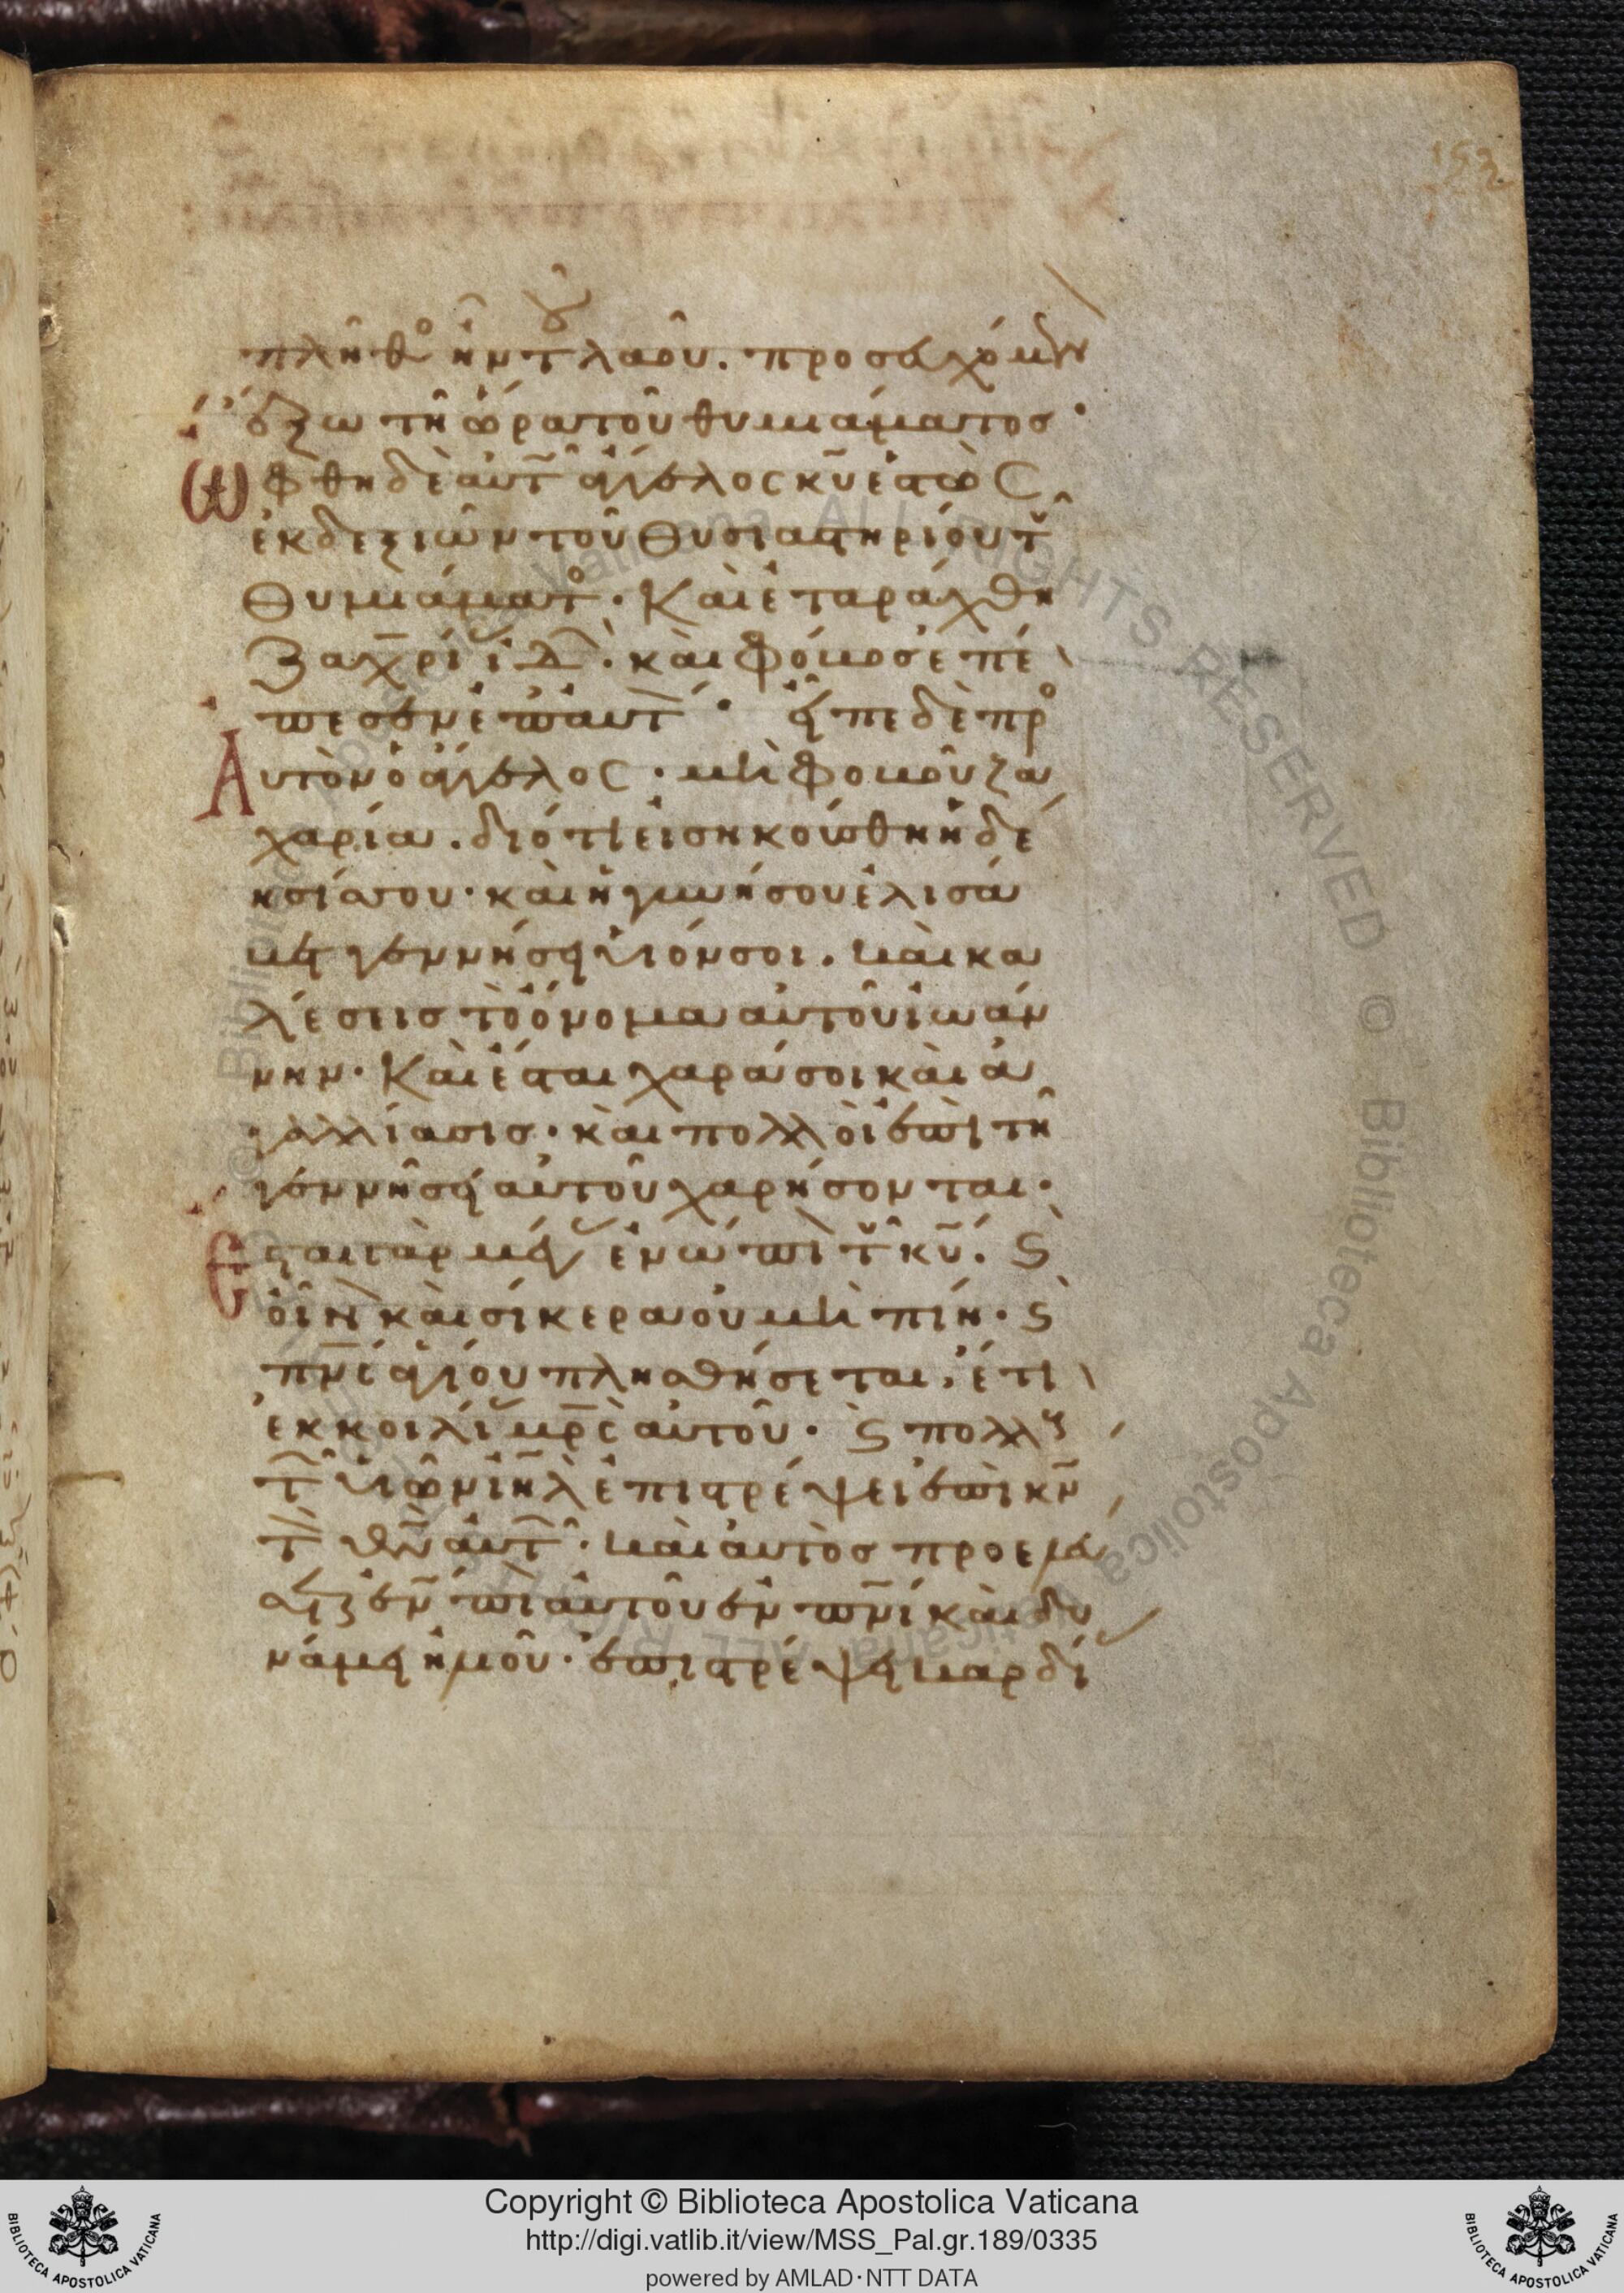 152
πλῆθο ἦν τοῦ λαοῦ. προσευχόμενον
ἔξω τῇ ὥρα τοῦ θυμιάματος·
Ὤφθη δὲ αὐτῶ ἄγγελος κ̅υ̅ ἑστὼς
ἐκ δεξιῶν τοῦ θυσιαστηρίου τοῦ
θυμιάματο· Καὶ ἐταράχθη
Ζαχαρί ἰδ· καὶ φόβος ἐπέ
πεσεν ἐπ αὐτ· εἶπε δὲ προ
Αὐτὸν ὁ ἄγγελος· μὴ φοβοῦ ζα
χαρία. διότι εἰσηκούσθη ἡ δέ
ησίς σου· καὶ ἡ γυνή σου ἐλισά
βετ γεννήσει υἱόν σοι. καὶ κα
λέσεις τὸ ὄνομα αὐτοῦ ἰωάν
νην· Καὶ ἔσται χαρά σοι καὶ ἀ
γαλλίασις· καὶ πολλοὶ ἐπὶ τῇ
γεννήσει αὐτοῦ χαρήσονται·
Ἔσται γὰρ μέγ ἐνώπι τοῦ κ̅υ̅. ϛ
οἶν καὶ σίκερα οὐ μὴ πίη· ϛ
π̅ν̅ς ἁγίου πλησθήσεται, ἔτι
ἐκ κοιλί μ̅ρ̅ς αὐτοῦ· ϛ πολλ
τῶν υἱῶν ἰ̅η̅λ̅ ἐπιστρέψει ἐπὶ κ̅ν̅
τ θ̅ν̅ αὐτῶν· καὶ αὐτὸς προελεύ
σετ ἐν πι αὐτοῦ ἐν π̅ν̅ι καὶ δυ
νάμει ἡλιοῦ· ἐπιστρέψει καρδί
Copyright © Biblioteca Apostolica Vaticana
http://digi.vatlib.it/view/MSS_Pal.gr.189/0335
powered by AMLAD·NTT DATA
BIBLIOTECA APOSTOLICA VATICANA
BIBLIOTECA APOSTOLICA VATICANA